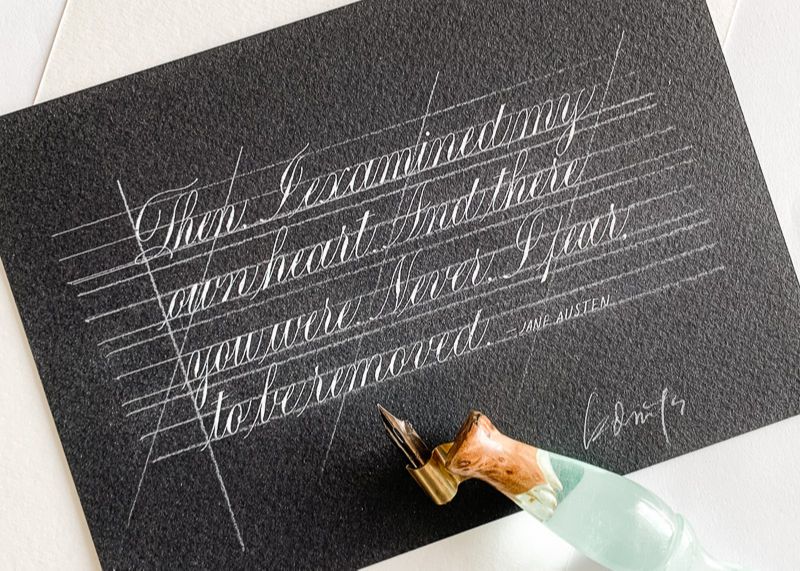 Then. I examined my
own heart. And there
you were. Never. I fear.
to be removed. – JANE AUSTEN